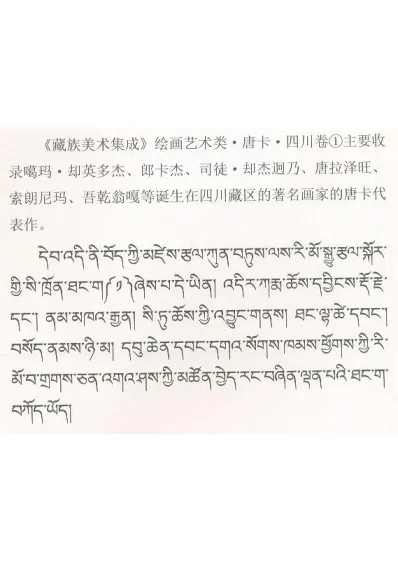 《藏族美术集成》绘画艺术类·唐卡·四川卷①主要收
录噶玛·却英多杰、郎卡杰、司徒·却杰迥乃、唐拉泽旺、
索朗尼玛、吾乾翁嘎等诞生在四川藏区的著名画家的唐卡代
表作。
དེབ་འདི་ནི་བོད་ཀྱི་མཛེས་རྩལ་ཀུན་བཏུས་ལས་རི་མོ་སྒྱུ་རྩལ་སྐོར་
གྱི་སི་ཁྲོན་ཐང་ག(༡)ཞེས་པ་དེ་ཡིན། འདིར་ཀརྨ་ཆོས་དབྱིངས་རྡོ་རྗེ་
དང་། ནམ་མཁའ་རྒྱན། སི་ཏུ་ཆོས་ཀྱི་འབྱུང་གནས། ཐང་ལྷ་ཚེ་དབང་།
བསོད་ནམས་ཉི་མ། དབུ་ཆེན་དབང་དགའ་སོགས་ཁམས་ཕྱོགས་ཀྱི་རི་
མོ་བ་གྲགས་ཅན་འགའ་ཤས་ཀྱི་མཚོན་བྱེད་རང་བཞིན་ལྡན་པའི་ཐང་ག་
བཀོད་ཡོད།